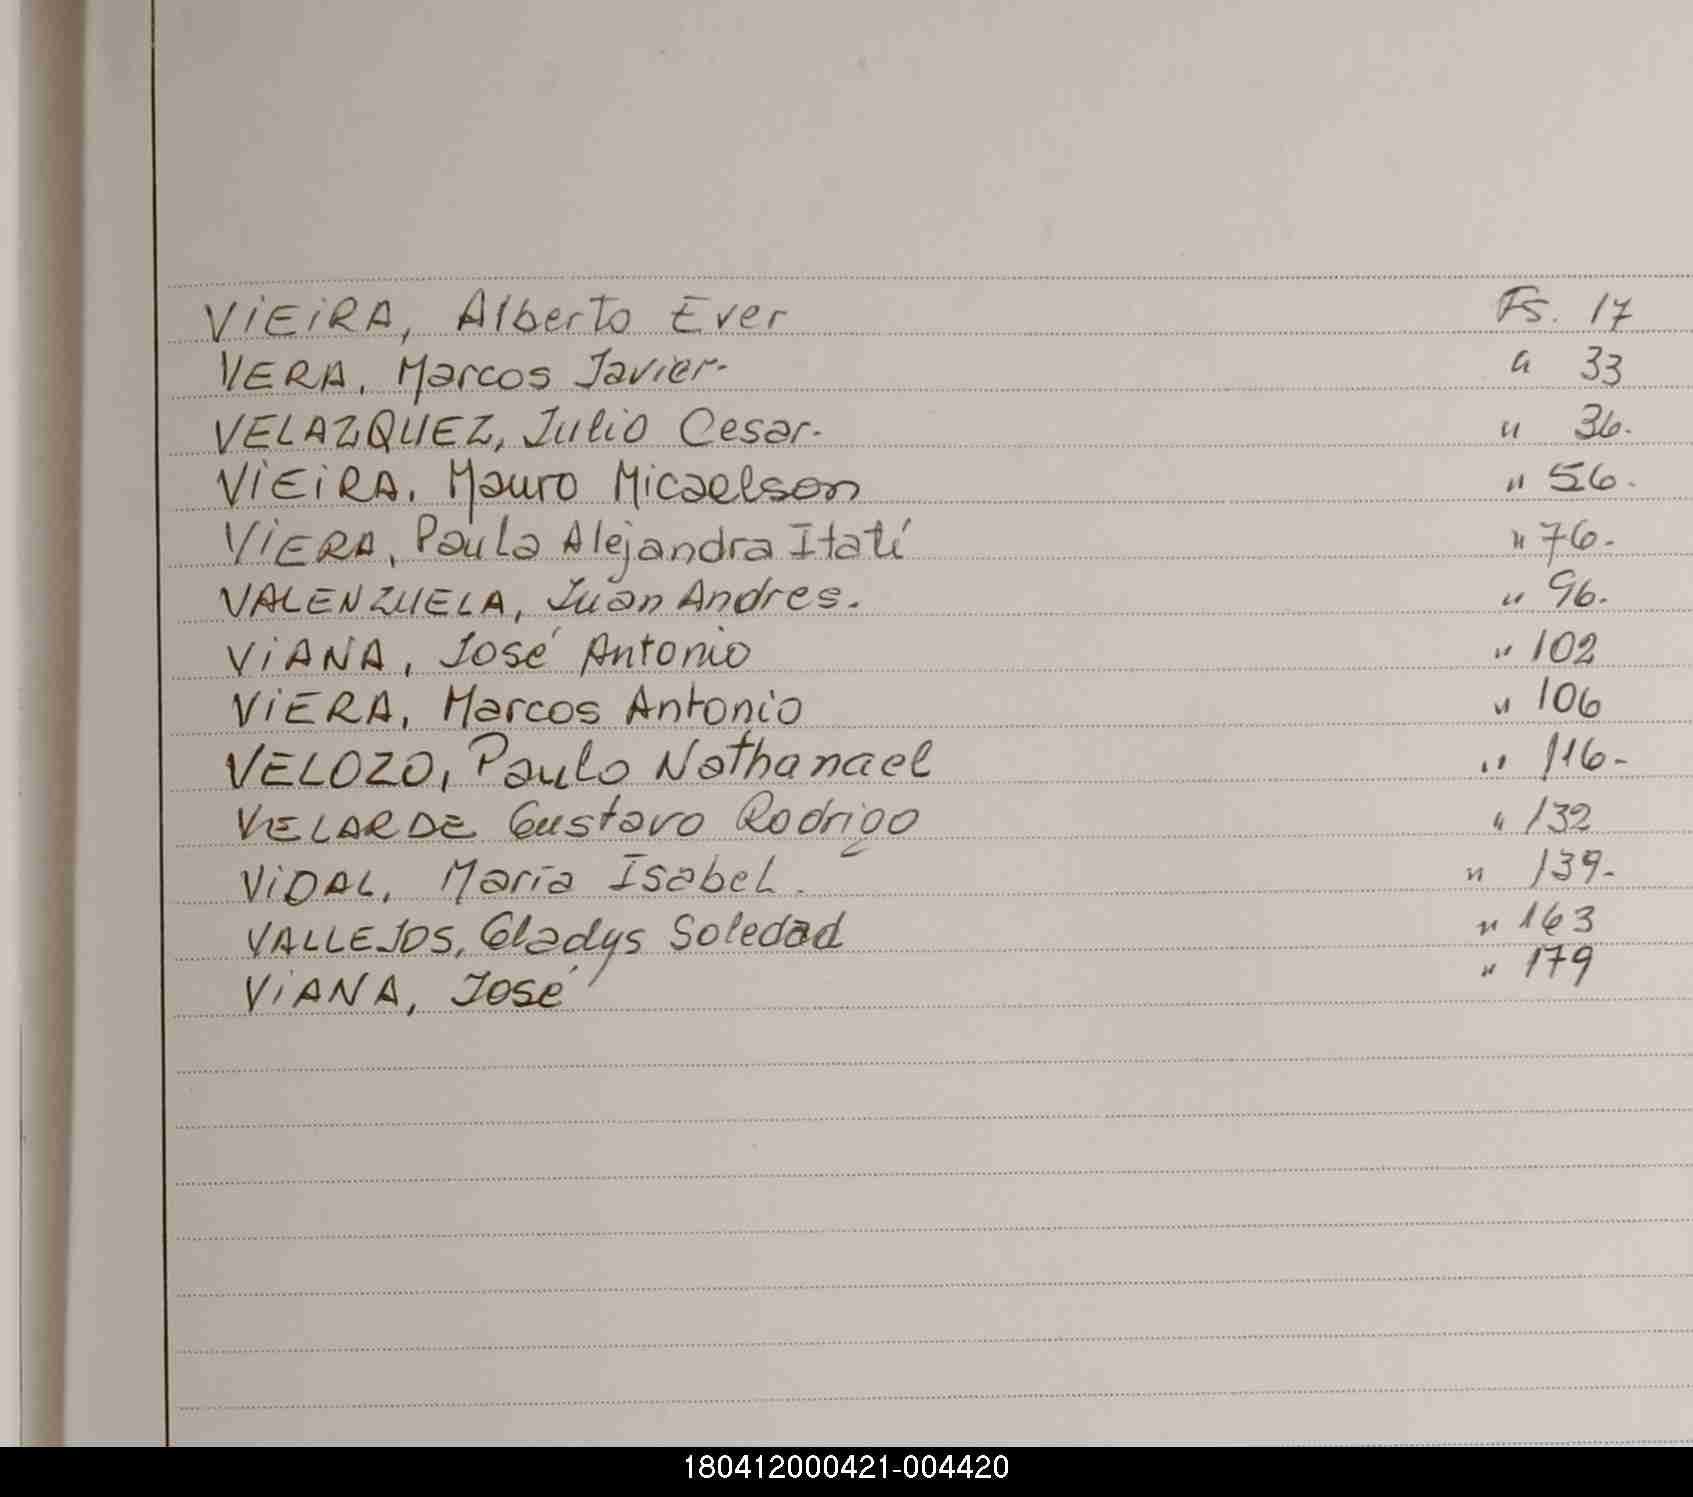 VIEIRA, Alberto Ever Fs. 17
VERA, Marcos Javier- " 33
VELAZQUEZ, Julio Cesar. " 36.
VIEIRA, Mauro Micaelson " 56.
VIERA, Paula Alejandra Itatí " 76.
VALENZUELA, Juan Andres. " 96.
VIANA, José Antonio " 102
VIERA, Marcos Antonio " 106
VELOZO, Paulo Nathanael " 116-
VELARDE Gustavo Rodrigo " 132
VIDAL, María Isabel. " 139-
VALLEJOS, Gladys Soledad " 163
VIANA, José " 179
180412000421-004420